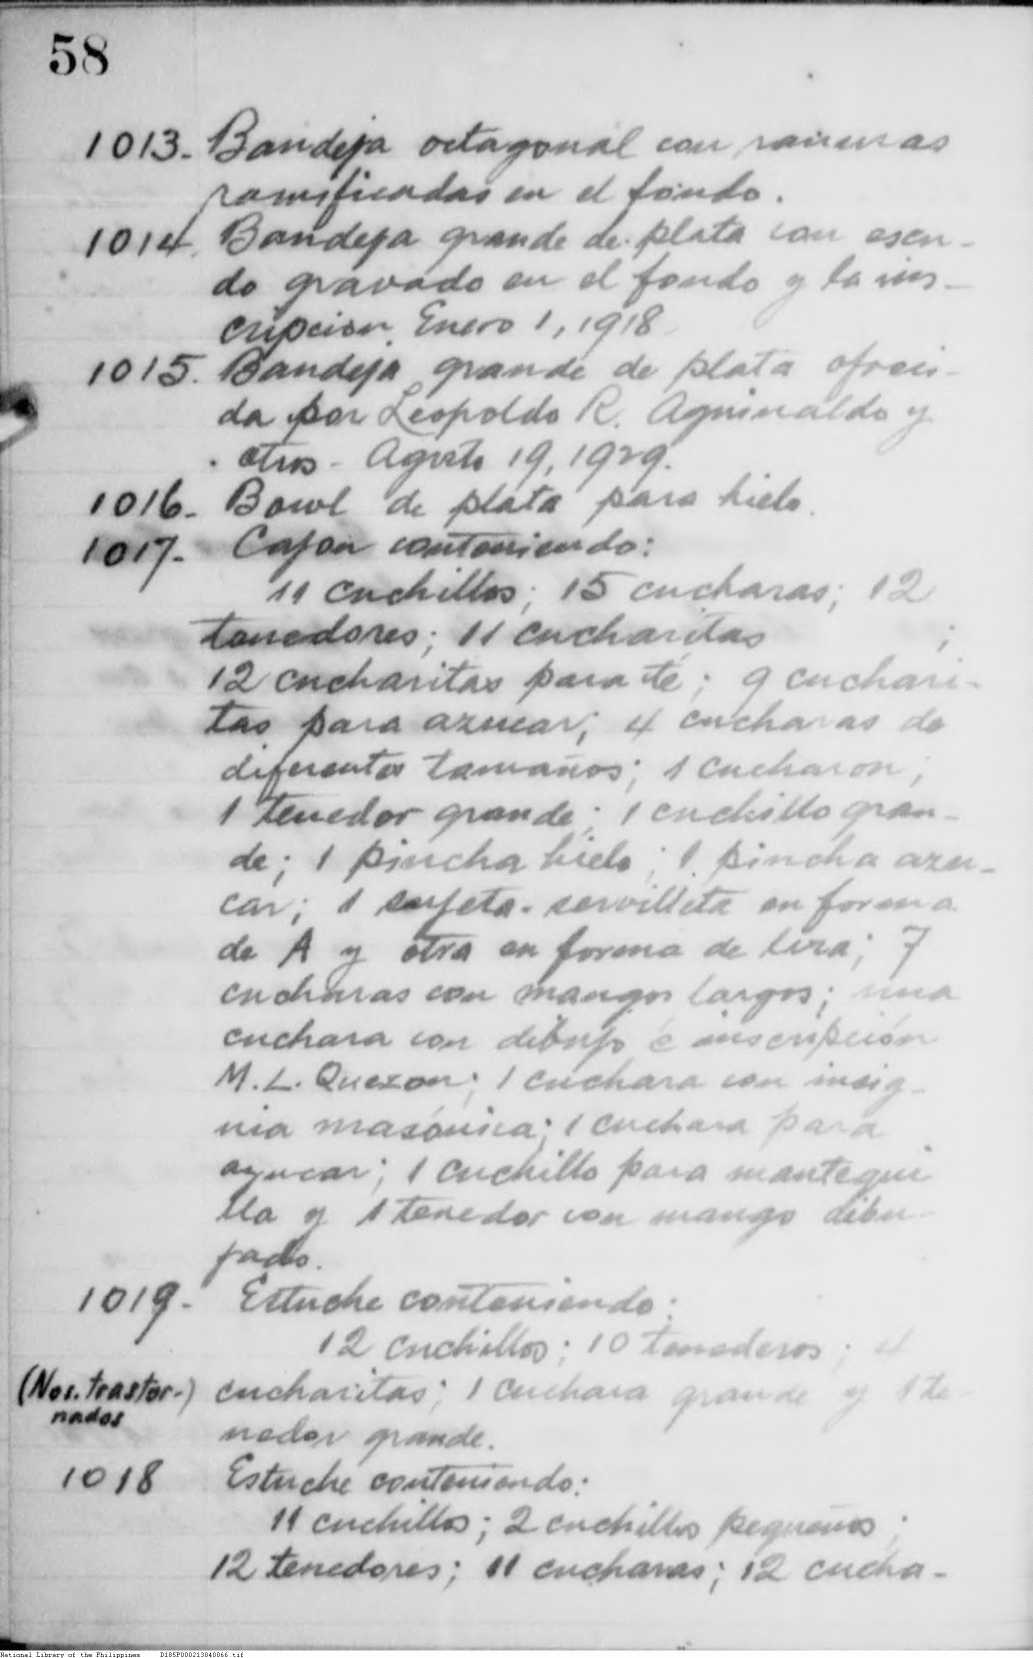 58
1013. Bandeja octagonal con ranuras
ramificadas en el fondo.
1014. Bandeja grande de plata con escu-
do gravado en el fondo y la ins-
cripcion Enero 1, 1918
1015. Bandeja grande de plata ofreci-
da por Leopoldo R. Aguinaldo y
otros - Agosto 19, 1929.
1016. Bowl de plata para hielo.
1017. Cajon conteniendo:
11 cuchillos; 15 cucharas; 12
tenedores; 11 cucharitas ;
12 cucharitas para té; 9 cuchari-
tas para azucar; 4 cucharas de
diferentes tamaños; 1 cucharon;
1 tenedor grande; 1 cuchillo gran-
de; 1 pincha hielo; 1 pincha azu-
car; 1 sujeta-servilleta en forma
de A y otra en forma de lira; 7
cucharas con mangos largos; una
cuchara con dibujo é inscripción
M. L. Quezon; 1 cuchara con insig-
nia masónica; 1 cuchara para
azucar; 1 cuchillo para mantequi
lla y 1 tenedor con mango dibu-
jado.
1019- Estuche conteniendo:
12 cuchillos; 10 tenederos; 4
(Nos. trastor-) cucharitas; 1 cuchara grande y 1 te-
nados
nedor grande.
1018 Estuche conteniendo:
11 cuchillos; 2 cuchillos pequeños;
12 tenedores; 11 cucharas; 12 cucha-
National Library of the Philippines D185P000213840066.tif